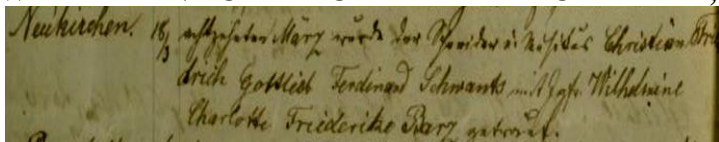 Neukirchen. 18/3 achtzehnten März wurde der Schneider u. Musikus Christian Frie
drich Gottlieb Ferdinand Schwantz mit Jgfr. Wilhelmine
Charlotte Friederike Barz getraut.